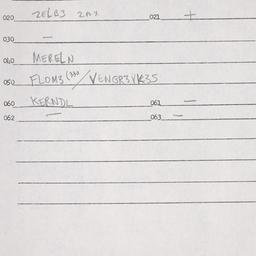 020 ZELB3 2AX 021 +
030 —
040 MERELN
050 FLOM3 / VENGR3VK35
060 KERNDL 061 —
062 — 063 —